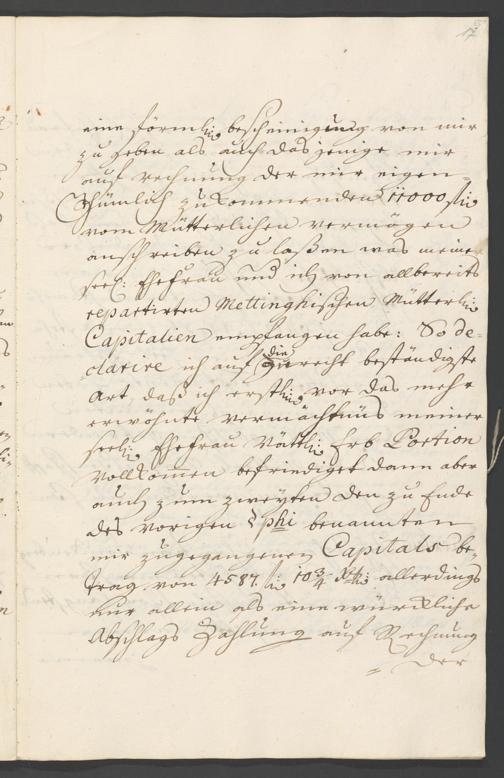 17
eine förmlich bescheinigung von mir
zu geben als auch dasjenige mir
auf rechnung der mir eigen-
thümlich zu kommenden 11000
vom Mütterlichen vermögen
anschreiben zu laßen was meine
seel: Ehefrau und ich von allbereits
repartirten Mettinghischen Mütterlich
Capitalien empfangen habe: So de-
clarire ich auf die zu recht beständigste
Art, daß ich erstlich vor das mehr
erwöhnte vermächtnüs meiner
seelig Ehefrau Vätterlich Erb Portion
vollkom̄en befriediget dann aber
auch zum zweyten den zu Ende
des vorigen § phi benannten
mir zugegangenen Capitals be-
trag von 4587. 10¾ allerdings
nur allein als eine würckliche
Abschlags Zahlung auf Rechnung
= der